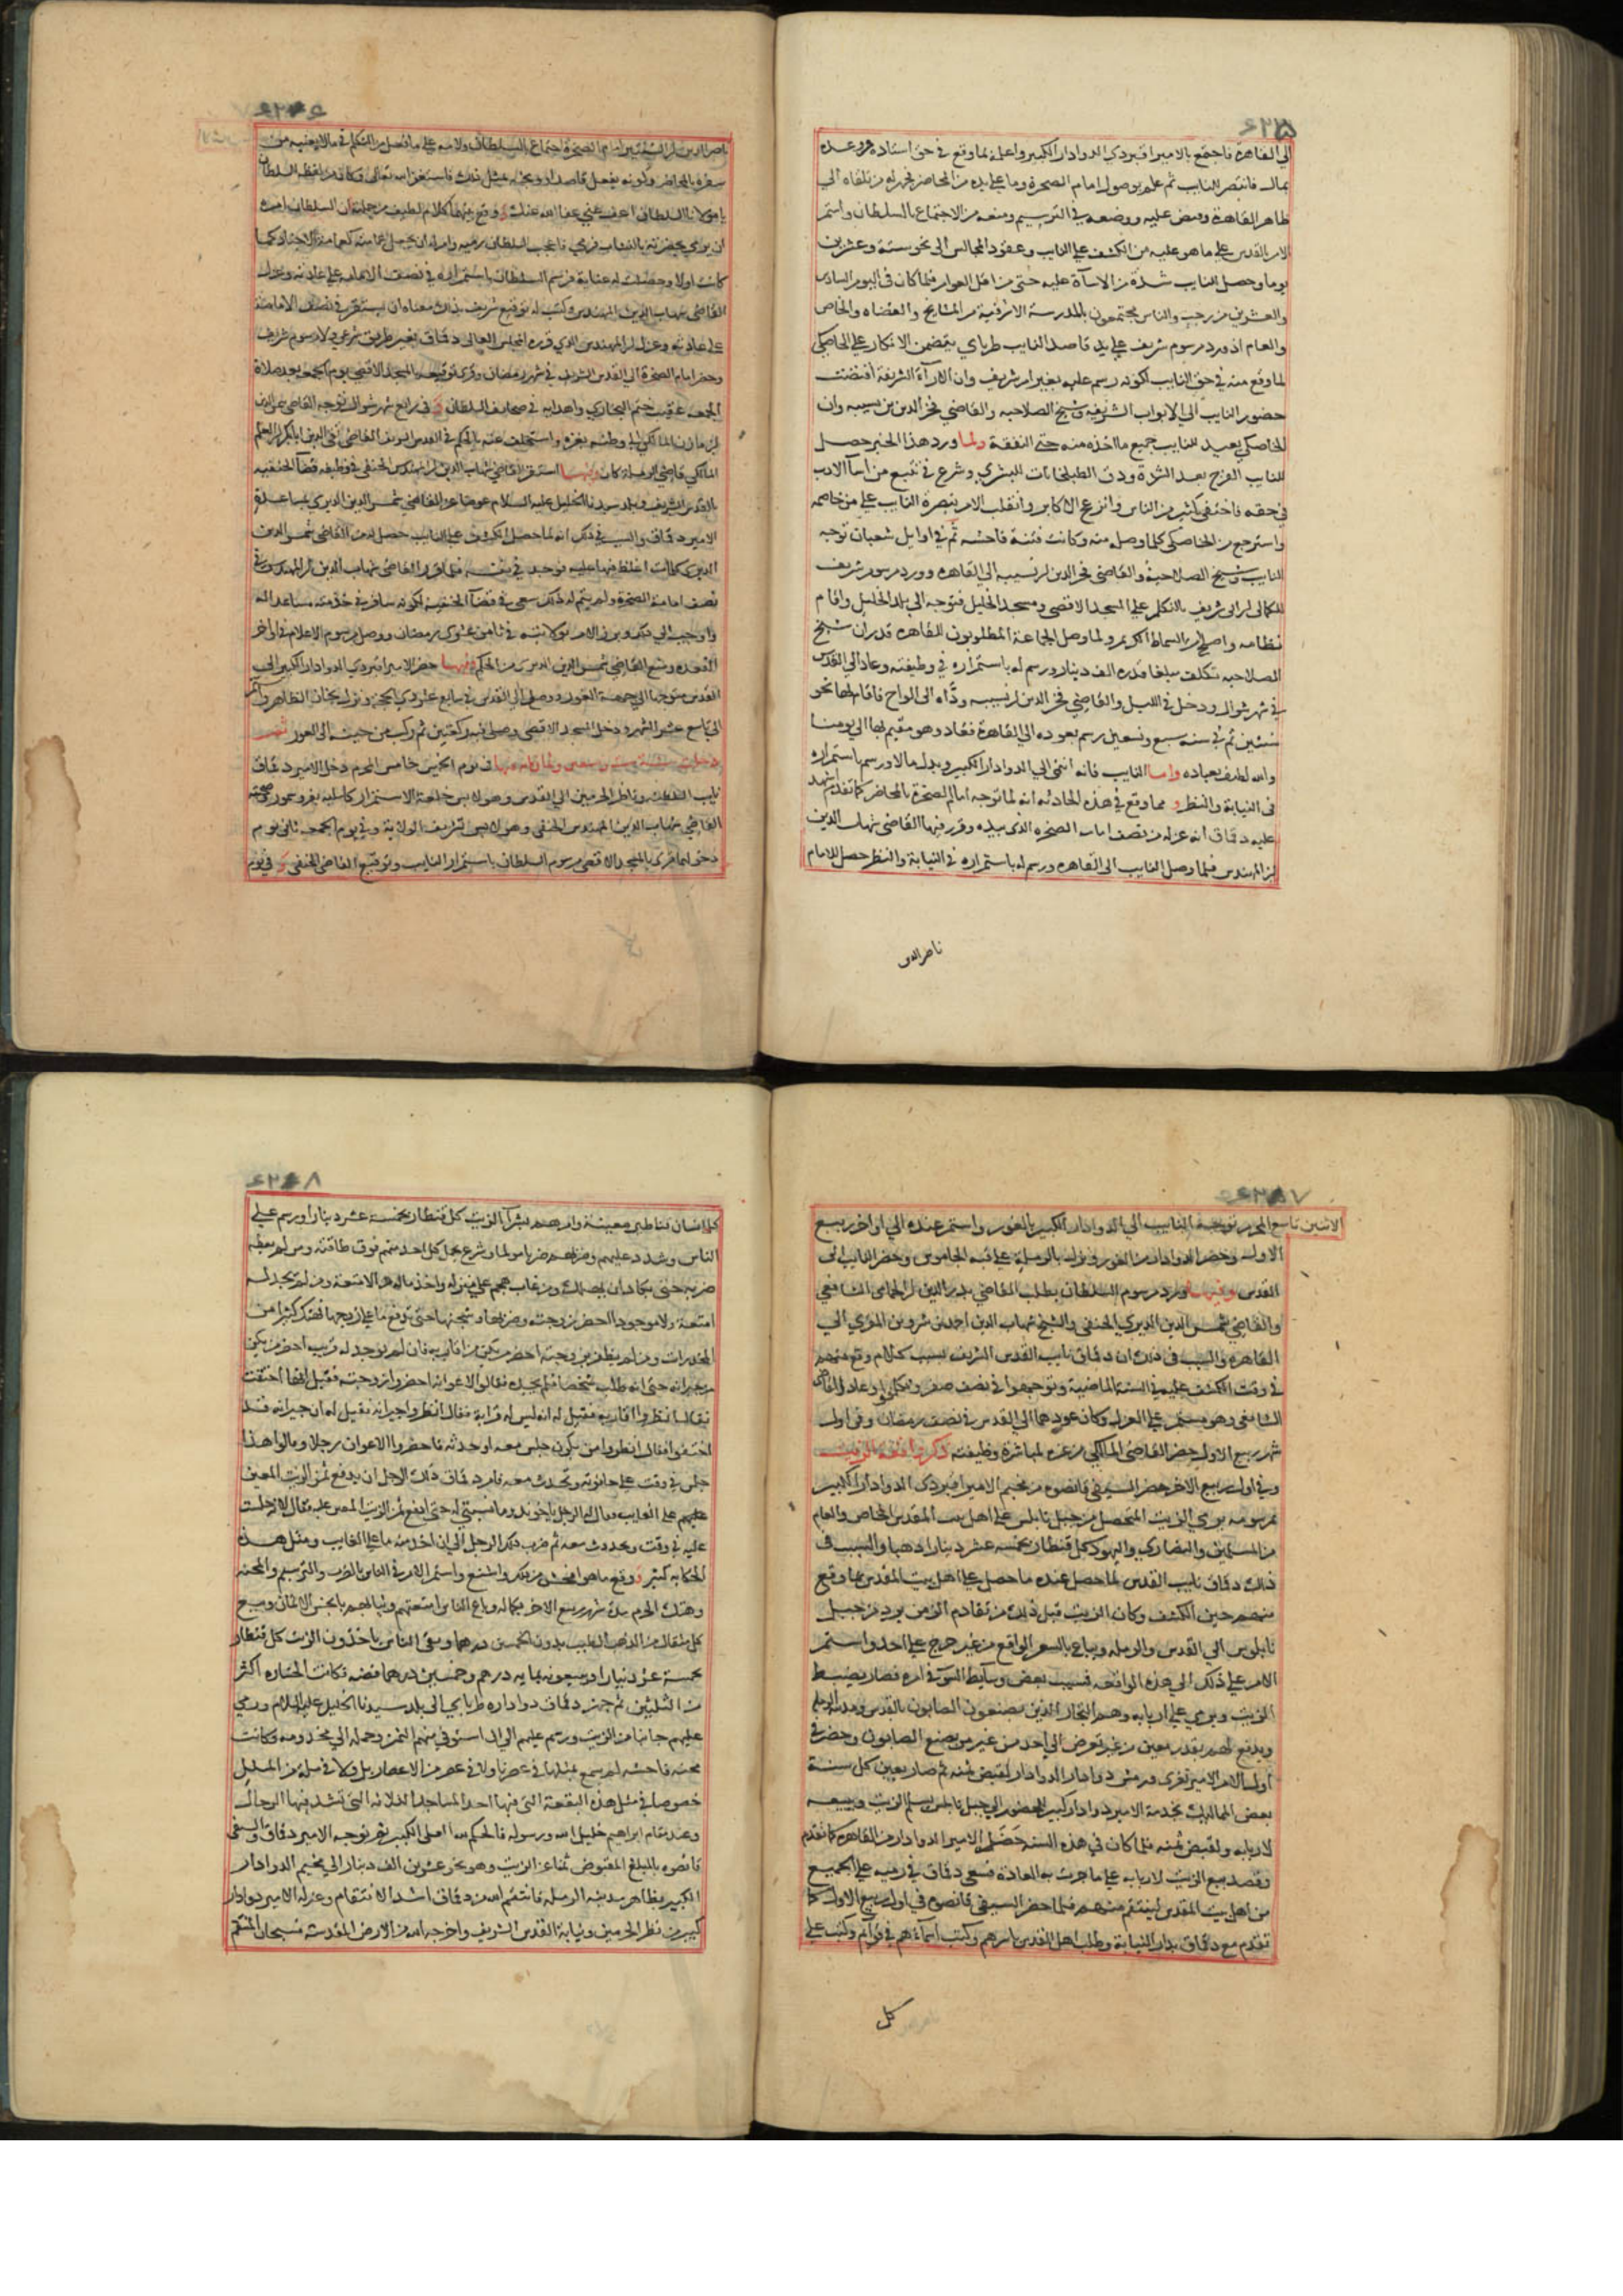 الى القاهرة فاجتمع بالامير اقبردي الدوادار الكبير واعلمه بما وقع في حق استاده ووعده
بمال فانتصر للنايب ثم علم بوصول امام الصخرة وما على يده من المحاضر فجهز له من تلقاه الى
ظاهر القاهرة وقبض عليه ووضعه في الترسيم ومنعه من الاجتماع بالسلطان واستمر
الامر بالقدس على ما هو عليه من الكشف على النايب وعقود المجالس الى نحو ستة وعشرين
يوما وحصل للنايب شدة من الاساة عليه حتى من اهل العوام فلما كان في اليوم السادس
والعشرين من رجب والناس مجتمعون بالمدرسة الاشرفية من المشايخ والقضاه والخاص
والعام اذ ورد مرسوم شريف على يد قاصد النايب طرباي يتضمن الانكار على الخاصكي
لما وقع منه في حق النايب لكونه رسم عليه بغير امر شريف وان الاراء الشريفة اقتضت
حضور النايب الى الابواب الشريفه وشيخ الصلاحيه والقاضي فخر الدين بن نسيبه وان
الخاصكي يعيد للنايب جميع ما اخذه منه حتى النفقة ولما ورد هذا الخبر حصل
للنايب الفرج بعد الشدة ودق الطبلخانات للبشرى وشرع في تتبع من اسا الادب
في حقه فاختفى كثير من الناس وانزعج الاكابر وانقلب الامر بنصرة النايب على من خاصمه
واسترجع من الخاصكي كلما وصل منه وكانت فتنة فاحشه ثم في اوايل شعبان توجه
النايب وشيخ الصلاحية والقاضي فخر الدين بن نسيبه الى القاهره وورد مرسوم شريف
للكمالى بن ابي شريف بالتكلم على المسجد الاقصى ومسجد الخليل فتوجه الى بلد الخليل واقام
نظامه واصلح السماط الكريم ولما وصل الجماعة المطلوبون للقاهره قدر ان شيخ
الصلاحيه تكلف مبلغا قدره الف دينار ورسم له باستمراره في وظيفته وعاد الى القدس
في شهر شوال ودخل في الليل والقاضي فخر الدين بن نسيبه ... الى الواح فاقام بها نحو
سنتين ثم في سنه سبع وتسعين رسم بعوده الى القاهرة فعاد وهو مقيم بها الى يومنا
والله لطيف بعباده واما النايب فانه انتمى الى الدوادار الكبير وبذل مالا ورسم باستمراره
في النيابة والنظر ومما وقع في هذه الحادثه انه لما توجه امام الصخرة بالمحاضر كما تقدم
عليه دقماق انه عزله من نصف امامه الصخره الذي بيده وقرر فيها القاضي شهاب الدين
بن المهندس فلما وصل النايب الى القاهره ورسم له باستمراره في النيابة والنظر حصل للامام
ناصر الدين
ناصر الدين بن ... امام الصخرة اجتماع بالسلطان ولامه على ما فعل من التكلم في ما لا يعنيه من
سفره بالمحاضر وكونه يفعل ... مثل ذلك فاستغفر الله تعالى وكان من لفظه للسلطان
يا مولانا السلطان اعف عني عفا الله عنك ووقع بينهما كلام لطيف من جملته ان السلطان امره
ان يرمي بحضرته بالنشاب فرمى فاعجب السلطان رميه ...
كانت اولا وحصلت له عناية فرسم السلطان باستمراره في نصف الامامه على عادته وعزل
القاضي شهاب الدين المهندس وكتب له توقيع شريف بذلك معناه ان يستقر في نصف الامامة
على عادته وعزل بن المهندس الذي قرره المجلس العالى دقماق بغير طريق شرعي ولا مرسوم شريف
وحضر امام الصخرة الى القدس الشريف في شهر رمضان وقرئ توقيعه بالمسجد الاقصى يوم الجمعه بعد صلاة
الجمعه عقيب ختم البخاري واهدايه في صحايف السلطان وفي رابع شهر شوال توجه القاضي شمس الدين
بن مازن المالكي الى وطنه بغزه واستخلف عنه بالحكم في القدس الشريف القاضي ...
المالكي قاضي الرملة كان وفيها استقر القاضي شهاب الدين بن المهندس الحنفي في وظيفة قضا الحنفيه
بالقدس الشريف وبلد سيدنا الخليل عليه السلام عوضا عن القاضي شمس الدين الديري بمساعدة
الامير دقماق والسبب في ذلك انه لما حصل الكشف على النايب حصل من القاضي شمس الدين
الديري كلمات اغلظ فيها عليه فوجد في نفسه فلما قرر القاضي شهاب الدين بن المهندس في
نصف امامة الصخرة ولم يتم له ذلك سعى في قضا الحنفيه لكونه سافر في خدمته مساعدا له
واوجب الى ذلك وبرز الامر بولايته في ثامن عشري رمضان ووصل مرسوم الاعلام في اواخر
القعده ومنع القاضي شمس الدين الديري من الحكم وفيها حضر الامير اقبردي الدوادار الكبير الى
القدس متوجها الى جهة الغور ودخل الى القدس في سابع عشري الحجة ونزل بخان الظاهر واقام
الى تاسع عشر الشهر ودخل المسجد الاقصى وصلى فيه ركعتين ثم ركب من حينه الى الغور ثم
دخلت سنة ست وتسعين وثمانمايه فيها في يوم الخميس خامس المحرم دخل الامير دقماق
نايب السلطنه وناظر الحرمين الى القدس وهو لابس خلعة الاستمرار كامليه بفرو سمور وصحبته
القاضي شهاب الدين المهندس الحنفي وهو لابس تشريف الولاية وفي يوم الجمعه ثاني يوم
دخولهما قرئ بالمسجد الاقصى مرسوم السلطان باستمرار النايب وتوقيع القاضي الحنفي وفي يوم
الاثنين تاسع المحرم توجه النايب الى الدوادار الكبير بالغور واستمر عنده الى اواخر ربيع
الاول وحضر الدوادار من الغور ونزل بالرملة على قبه الجاموس وحضر النايب الى
القدس وفيها ورد مرسوم السلطان بطلب القاضي بدر الدين بن الحمامي الشافعي
والقاضي شمس الدين الديري الحنفي والشيخ شهاب الدين احمد بن شروين المقري الى
القاهره والسبب في ذلك ان دقماق نايب القدس الشريف بسبب كلام وقع منهم
في وقت الكشف عليه في السنة الماضية وتوجهوا في نصف صفر ... وعاد القاضي
الشافعي وهو مستمر على العزل وكان عودهما الى القدس في نصف رمضان وفي اول
شهر ربيع الاول حضر القاضي المالكي من غزه لمباشرة وظيفته ذكر واقعة الزيت
وفي اول ربيع الاخر حضر السيفي قانصوه من مخيم الامير اقبردي الدوادار الكبير
بمرسومه برمي الزيت المتحصل من جبل نابلس على اهل بيت المقدس الخاص والعام
من المسلمين والنصارى واليهود كل قنطار بخمسه عشر دينارا ذهبا والسبب في
ذلك دقماق نايب القدس لما حصل عنده ما حصل على اهل بيت المقدس بما وقع
منهم حين الكشف وكان الزيت قبل ذلك من تقادم الزمن يرد من جبل
نابلوس الى القدس والرمله ويباع بالسعر الواقع من غير حرج على احد واستمر
الامر على ذلك الى هذه الواقعه فسبب بعض وسايط السوء في امره فصار يضبط
الزيت ويرمي على اربابه وهم التجار الذين يصنعون الصابون بالقدس ومدينة الرمله
ويدفع لهم بقدر معين من غير تعرض الى احد من غير من يصنع الصابون وحضر في
اول الامر الامير تغري ورمش دوادار الدوادار لقبض ثمنه ثم صار يعين كل سنة
بعض المماليك بخدمة الامير دوادار كبير للحضور الى جبل نابلس ليتسلم الزيت ويبيعه
لاربابه ولقبض ثمنه فلما كان في هذه السنه حضر الامير الدوادار من القاهره كما تقدم
وقصد بيع الزيت لاربابه على ما جرت به العادة فسعى دقماق في رميه على الجميع
من اهل بيت المقدس لينتقم منهم فلما حضر السيفي قانصوه في اول ربيع الاول كما
تقدم مع دقماق بدار النيابة وطلب اهل القدس باسرهم وكتب اسماءهم في قوائم وكتب على
كل
كل انسان قناطير معينة وامرهم بشراء الزيت كل قنطار بخمسة عشر دينارا ورسم على
الناس وشدد عليهم وضربهم ضربا مولما وشرع يحمل كل احد منهم فوق طاقته ومن لم يعطه
ضربه حتى يكاد ان يهلك ومن غاب هجم على منزله واخذ ماله من الامتعة ومن لم يجد له
امتعة ولا موجود احضر زوجته وضربها وسجنها حتى تدفع ما على زوجها فهتك كثيرا من
المخدرات ومن لم يظفر بزوجته احضر من يكن من اقاربه فان لم يوجد له قريب احضر من يكن
من جيرانه حتى انه طلب شخصا فلم يجده فقال للاعوان احضروا زوجته فقيل انها اختفت
فقال انظروا اقاربه فقيل له انه ليس له قرابة فقال انظروا جيرانه فقيل له ان جيرانه قد
اختفوا فقال انظروا من يكون جلس معه او حدثه فاحضروا الاعوان رجلا وقالوا هذا
جلس في وقت على حانوته وتحدث معه فامر دقماق ذلك الرجل ان يدفع ثمن الزيت المعين
عليهم على الغايب فقال له الرجل يا خوند وما نسبتي له حتى ادفع ثمن الزيت المعين عليه فقال لانك جلست
عليه في وقت وتحدثت معه ثم ضرب ذلك الرجل الى ان اخذ منه ما على الغايب ومثل هذه
الحكايه كثير ووقع ما هو افحش من ذلك واشنع واستمر الامر في الناس بالضرب والترسيم والمحنه
وهتك الحرم مدة شهر ربيع الاخر بكماله وباع الناس امتعتهم وثيابهم بابخس الاثمان وبيع
كل مثقال من الذهب الطيب بدون الخمسين درهما وبقي الناس ياخذون الزيت كل قنطار
بخمسة عشر دينارا ويبيعونه بمايه درهم وخمسين درهما فضه فكانت الخساره اكثر
من الثلثين ثم جهز دقماق دواداره طرباي الى بلد سيدنا الخليل عليه السلام ورمى
عليهم جانبا من الزيت ورسم عليهم الى ان استوفى منهم الثمن وحمله الى مخدومه وكانت
محنه فاحشه لم يسمع بمثلها في عصرنا ولا في عصر من الاعصار بل ولا في ملة من الملل
خصوصا في مثل هذه البقعة التي فيها احد المساجد الثلاثه التي تشد فيها الرحال
وعند مقام ابراهيم خليل الله ورسوله فالحكم لله العلى الكبير ثم توجه الامير دقماق والسيفي
قانصوه بالمبلغ المقبوض ثمنا عن الزيت وهو نحو عشرين الف دينار الى مخيم الدوادار
الكبير بظاهر مدينه الرملة فانتقم الله من دقماق اشد الانتقام وعزله الامير دوادار
كبير من نظر الحرمين ونيابة القدس الشريف واخرجه الله من الارض المقدسة فسبحان المنتقم